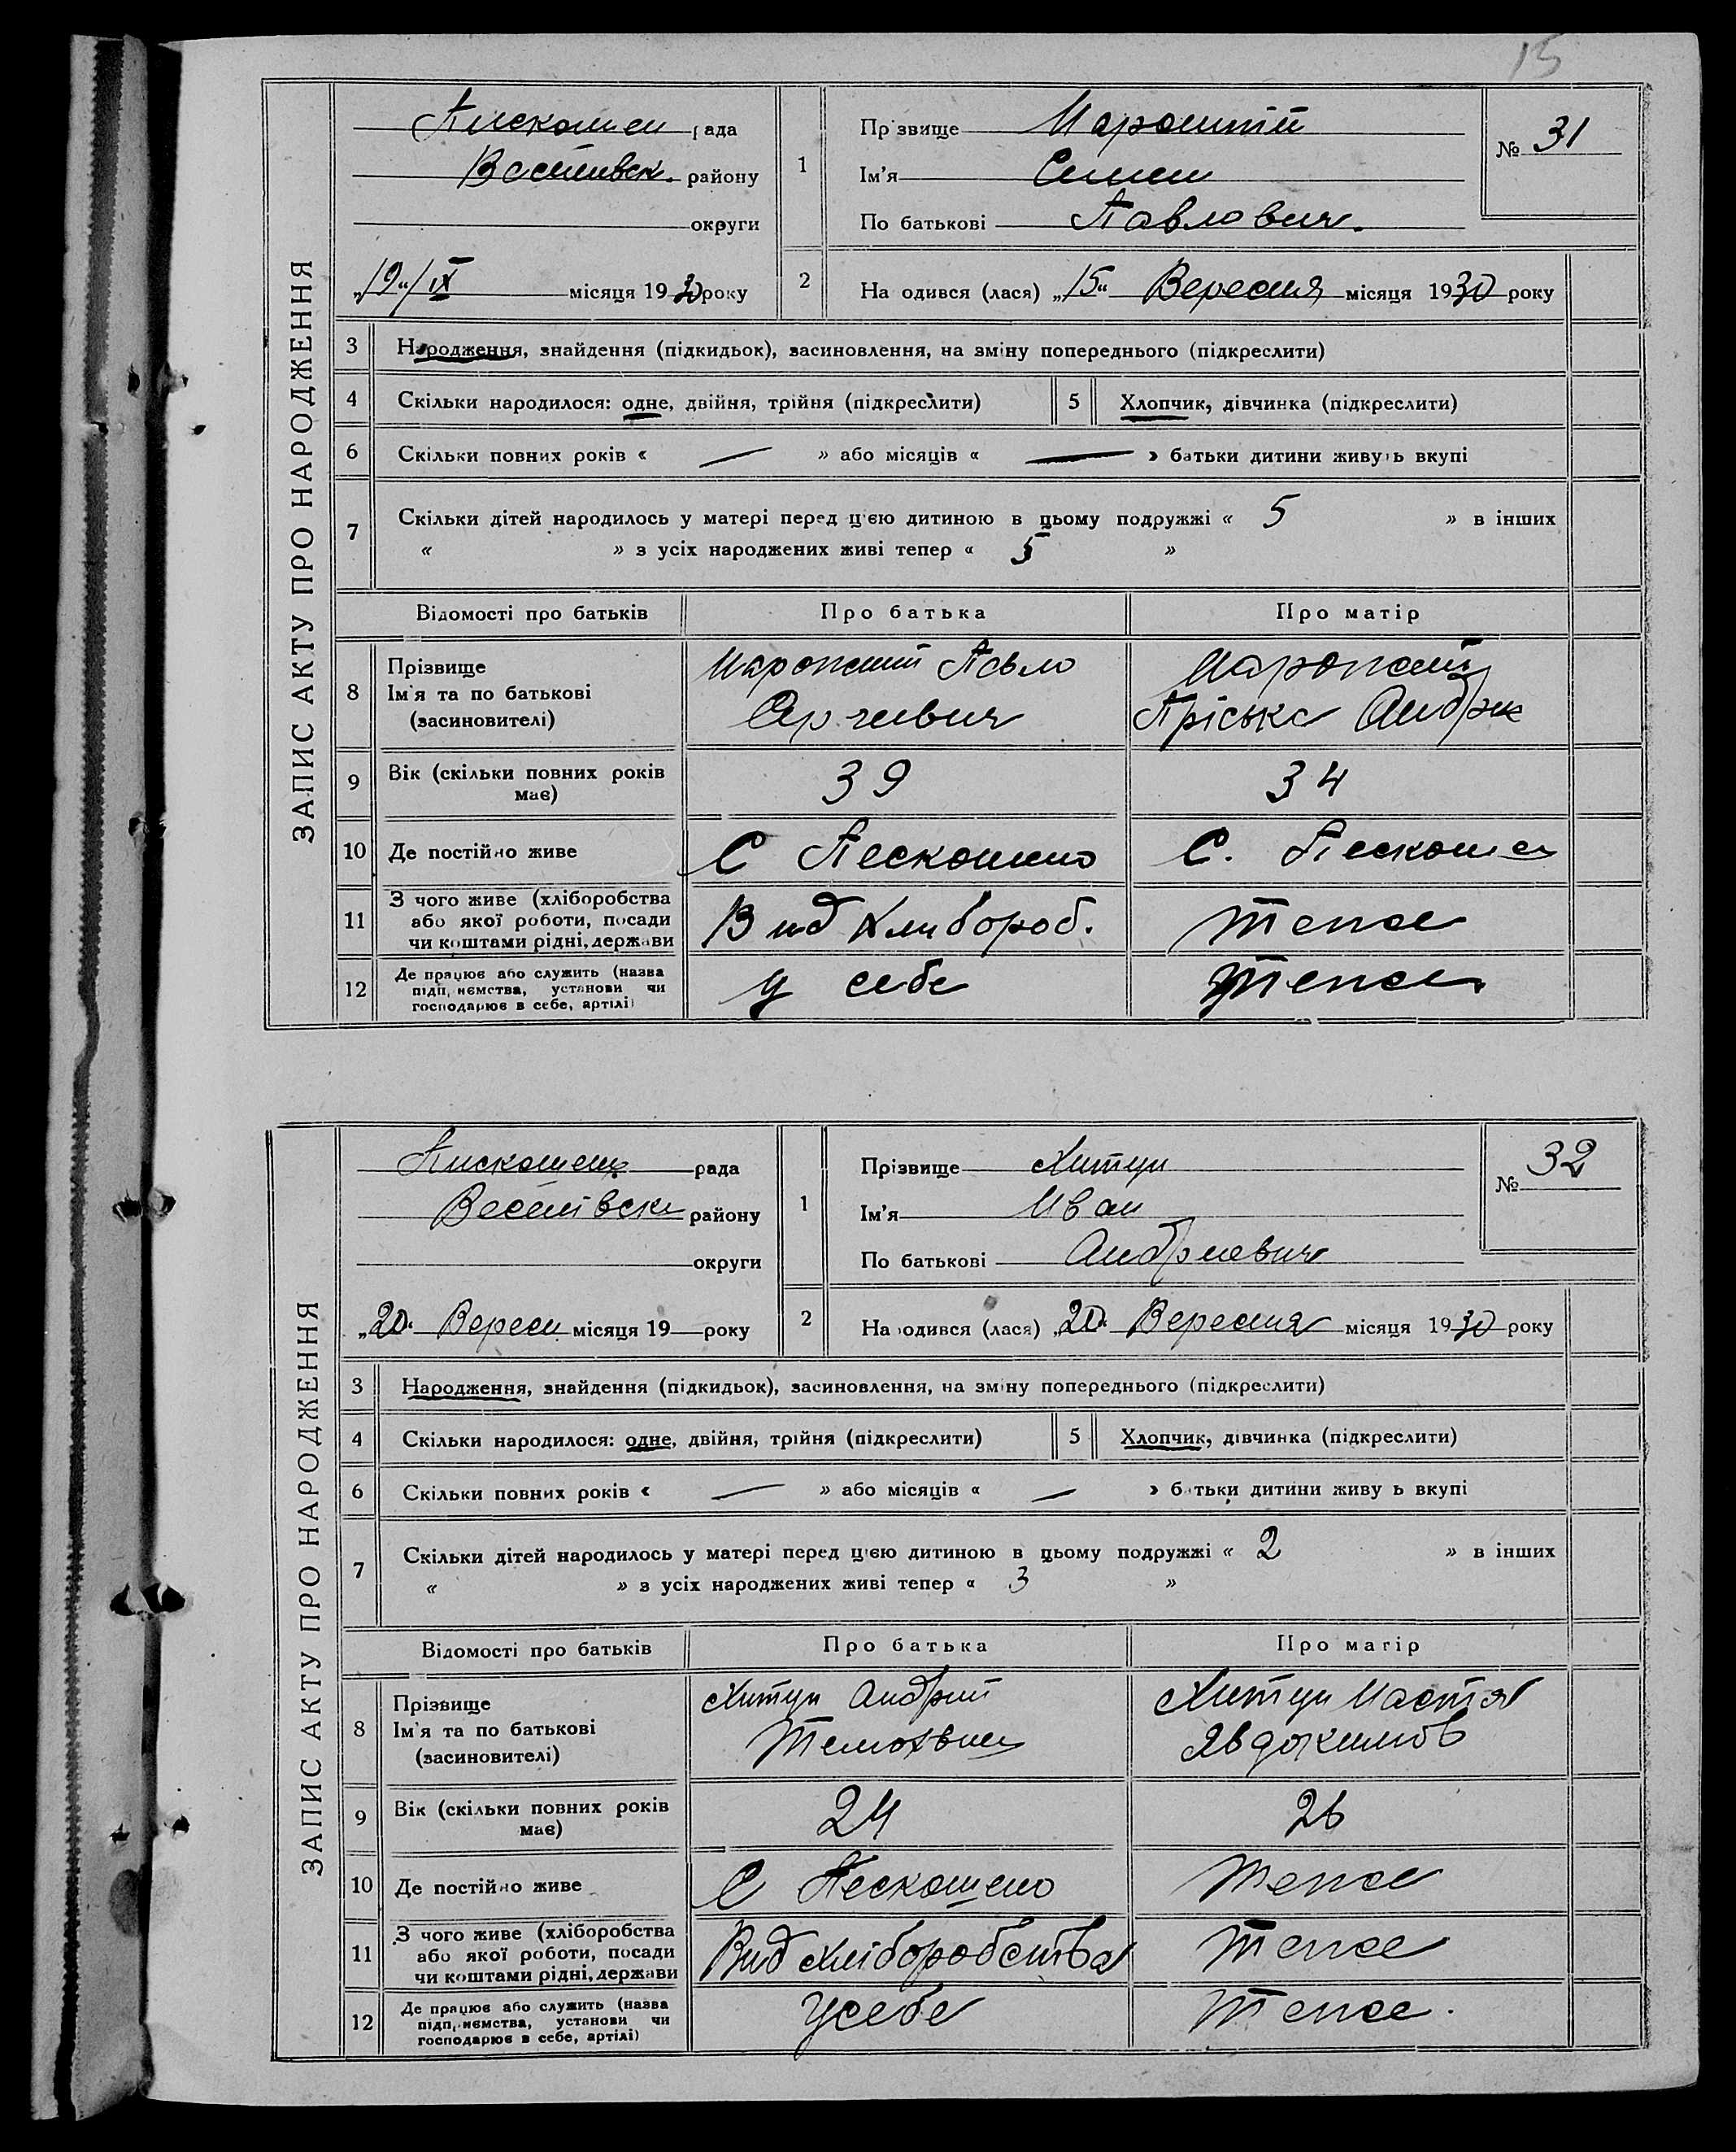 15
ЗАПИС АКТУ ПРО НАРОДЖЕННЯ
Пискошен рада
Веселивск. району
округи
„19“/IX місяця 1930 року
1
Прізвище
Ім'я Семен
По батькові Павлович.
№ 31
2 Народився (лася) „15“ Вересня місяця 1930 року
3 Народження, знайдення (підкидьок), засиновлення, на зміну попереднього (підкреслити)
4 Скільки народилося: одне, двійня, трійня (підкреслити) 5 Хлопчик, дівчинка (підкреслити)
6 Скільки повних років « — » або місяців « — » батьки дитини живуть вкупі
7 Скільки дітей народилось у матері перед цією дитиною в цьому подружжі « 5 » в інших
« » з усіх народжених живі тепер « 5 »
Відомості про батьків Про батька Про матір
8 Прізвище
Ім'я та по батькові
(засиновителі)
Павло
Пріська Андрі
9 Вік (скільки повних років має) 39 34
10 Де постійно живе С Пескошено С. Пескошен
11 З чого живе (хліборобства
або якої роботи, посади
чи коштами рідні, держави
Вид Хлибороб. тепое
12 Де працює або служить (назва
підприємства, установи чи
господарює в себе, артілі)
у себе тепое
ЗАПИС АКТУ ПРО НАРОДЖЕННЯ
Пискошен рада
Веселівск району
округи
„20“ Вересн місяця 19 року
1
Прізвище Хитун
Ім'я Иван
По батькові Андриевич
№ 32
2 Народився (лася) „20“ Вересня місяця 1930 року
3 Народження, знайдення (підкидьок), засиновлення, на зміну попереднього (підкреслити)
4 Скільки народилося: одне, двійня, трійня (підкреслити) 5 Хлопчик, дівчинка (підкреслити)
6 Скільки повних років « — » або місяців « — » батьки дитини живуть вкупі
7 Скільки дітей народилось у матері перед цією дитиною в цьому подружжі « 2 » в інших
« » з усіх народжених живі тепер « 3 »
Відомості про батьків Про батька Про матір
8 Прізвище
Ім'я та по батькові
(засиновителі)
Хитун Андрий
Хитун Настя
Явдокимов
9 Вік (скільки повних років має) 24 26
10 Де постійно живе С Пескошено тепое
11 З чого живе (хліборобства
або якої роботи, посади
чи коштами рідні, держави
Вид хліборобства тепое
12 Де працює або служить (назва
підприємства, установи чи
господарює в себе, артілі)
усебе тепое.